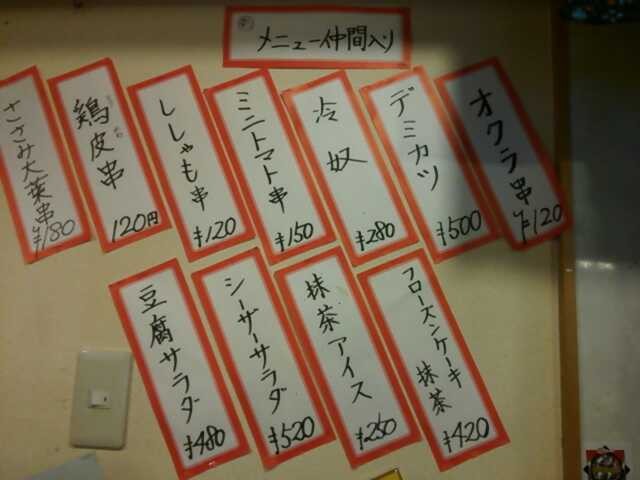 メニュー仲間入り
ささみ大葉串 ¥180
鶏皮串 120円
ししゃも串 ¥120
ミニトマト串 ¥150
冷奴 ¥280
デミカツ ¥500
オクラ串 ¥120
豆腐サラダ ¥480
シーザーサラダ ¥520
抹茶アイス ¥250
フローズンケーキ
抹茶 ¥420